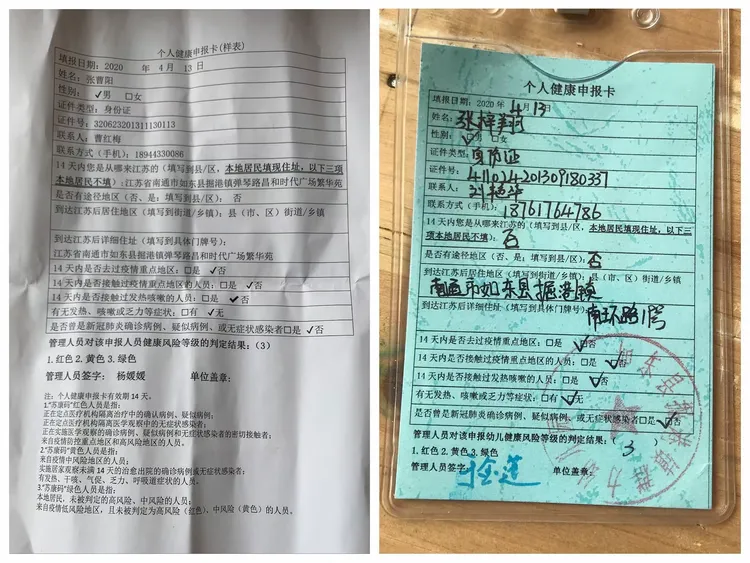 个人健康申报卡(样表)
填报日期:2020 年 4 月 13 日
姓名:张曹阳
性别: ✓男 □女
证件类型:身份证
证件号:320623201311130113
联系人:曹红梅
联系方式(手机):18944330086
14 天内您是从哪来江苏的(填写到县/区,本地居民填现住址,以下三项
本地居民不填):江苏省南通市如东县掘港镇弹琴路昌和时代广场繁华苑
是否有途径地区(否、是;填写到县/区): 否
到达江苏后居住地区(填写到街道/乡镇):县(市、区)街道/乡镇
到达江苏后详细住址(填写到具体门牌号):
江苏省南通市如东县掘港镇弹琴路昌和时代广场繁华苑
14 天内是否去过疫情重点地区:□是 ✓否
14 天内是否接触过疫情重点地区的人员:□是 ✓否
14 天内是否接触过发热咳嗽的人员:□是 ✓否
有无发热、咳嗽或乏力等症状:□有 ✓无
是否曾是新冠肺炎确诊病例、疑似病例、或无症状感染者□是 ✓否
管理人员对该申报人员健康风险等级的判定结果:(3)
1. 红色 2. 黄色 3. 绿色
管理人员签字: 杨媛媛 单位盖章:
注:个人健康申报卡有效期 14 天。
1."苏康码"红色人员是指:
正在定点医疗机构隔离治疗中的确认病例、疑似病例;
正在定点医疗机构隔离医学观察中的无症状感染者;
正在实施医学观察的确诊病例、疑似病例和无症状感染者的密切接触者;
来自疫情防控重点地区和高风险地区的人员。
2."苏康码"黄色人员是指:
来自疫情中风险地区的人员;
实施居家观察未满 14 天的治愈出院的确诊病例或无症状感染者;
有发热、干咳、气促、乏力、呼吸道症状的人员。
3."苏康码"绿色人员是指:
本地居民,未被判定的高风险、中风险的人员;
来自疫情低风险地区,且未被判定为高风险(红色)、中风险(黄色)的人员。
个人健康申报卡
填报日期:2020 年 4 月 13 日
姓名:张梓
性别: ✓男 □女
证件类型:身份证
证件号:411024201309180337
联系人:
联系方式(手机):18761764786
14 天内您是从哪来江苏的(填写到县/区,本地居民填现住址,以下三
项本地居民不填): 否
是否有途径地区(否、是;填写到县/区): 否
到达江苏后居住地区(填写到街道/乡镇):县(市、区)街道/乡镇
南通市如东县掘港镇
到达江苏后详细住址(填写到具体门牌号):南环路1号
14 天内是否去过疫情重点地区:□是 ✓否
14 天内是否接触过疫情重点地区的人员:□是 ✓否
14 天内是否接触过发热咳嗽的人员:□是 ✓否
有无发热、咳嗽或乏力等症状:□有 ✓无
是否曾是新冠肺炎确诊病例、疑似病例、或无症状感染者□是 ✓否
管理人员对该申报幼儿健康风险等级的判定结果:( 3 )
1. 红色 2. 黄色 3. 绿色
管理人员签字: 单位盖章: